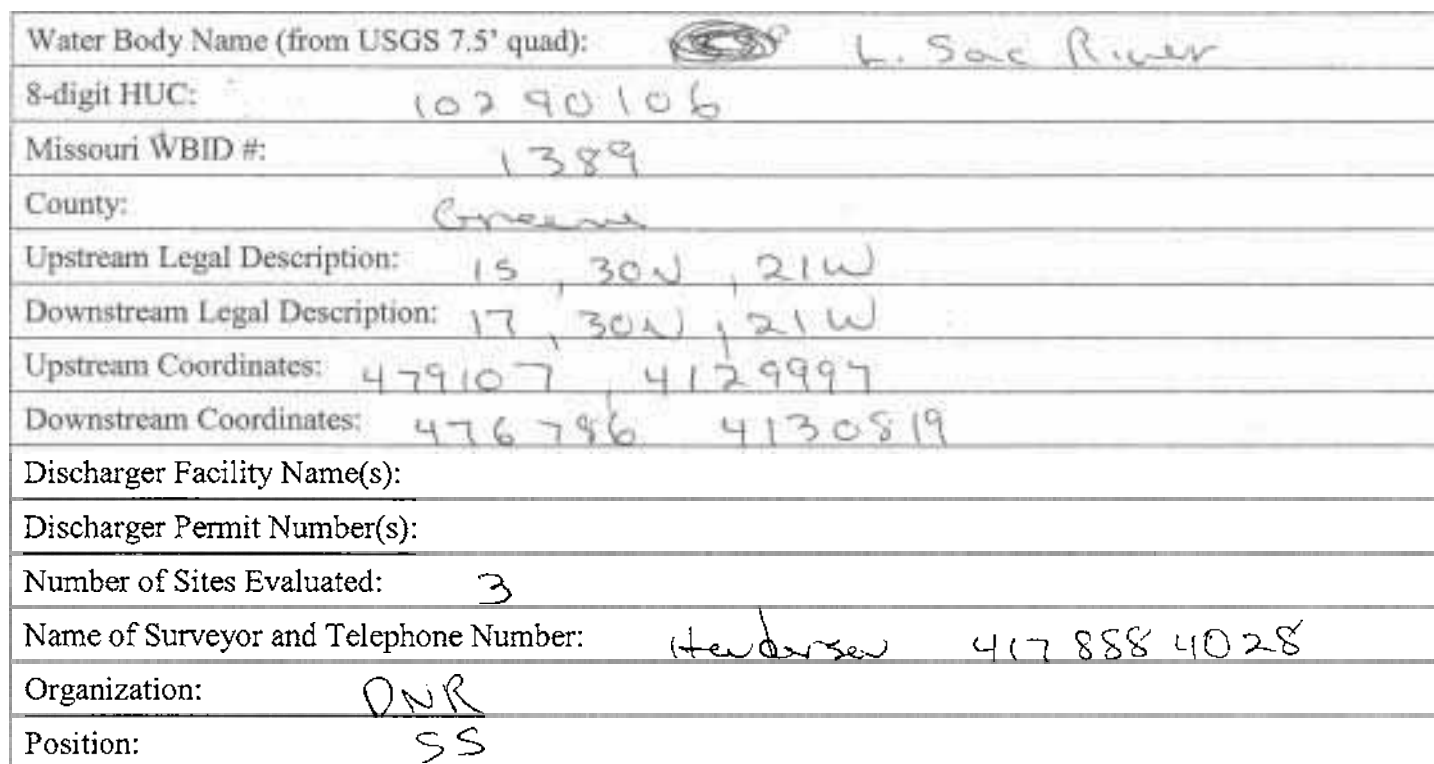 Water Body Name (from USGS 7.5' quad): L. Sac River
8-digit HUC: 10290106
Missouri WBID #: 1389
County: Greene
Upstream Legal Description: 15, 30N, 21W
Downstream Legal Description: 17, 30N, 21W
Upstream Coordinates: 479107, 4129997
Downstream Coordinates: 476786 4130819
Discharger Facility Name(s):
Discharger Permit Number(s):
Number of Sites Evaluated: 3
Name of Surveyor and Telephone Number: Henderson 417 888 4028
Organization: DNR
Position: SS